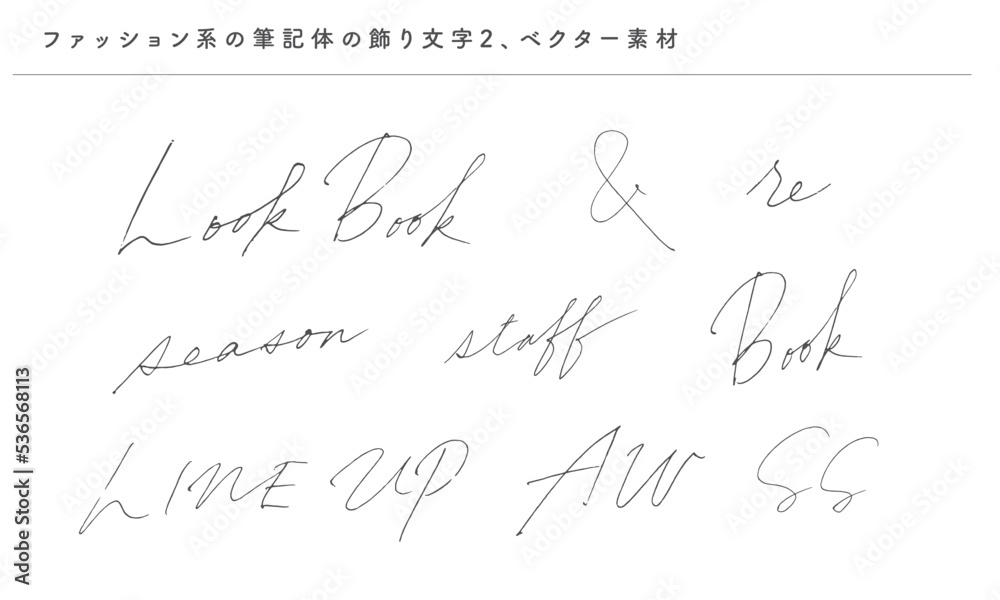 ファッション系の筆記体の飾り文字2、ベクター素材
Look Book & re
season staff Book
LINE UP AW SS
Adobe Stock | #536568113